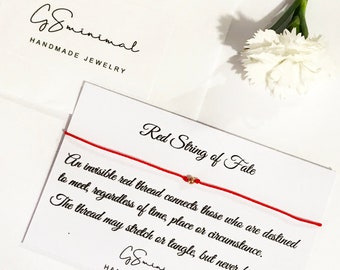 GSminimal
HANDMADE JEWELRY
Red String of Fate
An invisible red thread connects those who are destined
to meet, regardless of time, place or circumstance.
The thread may stretch or tangle, but never
GSmini
HANDMADE